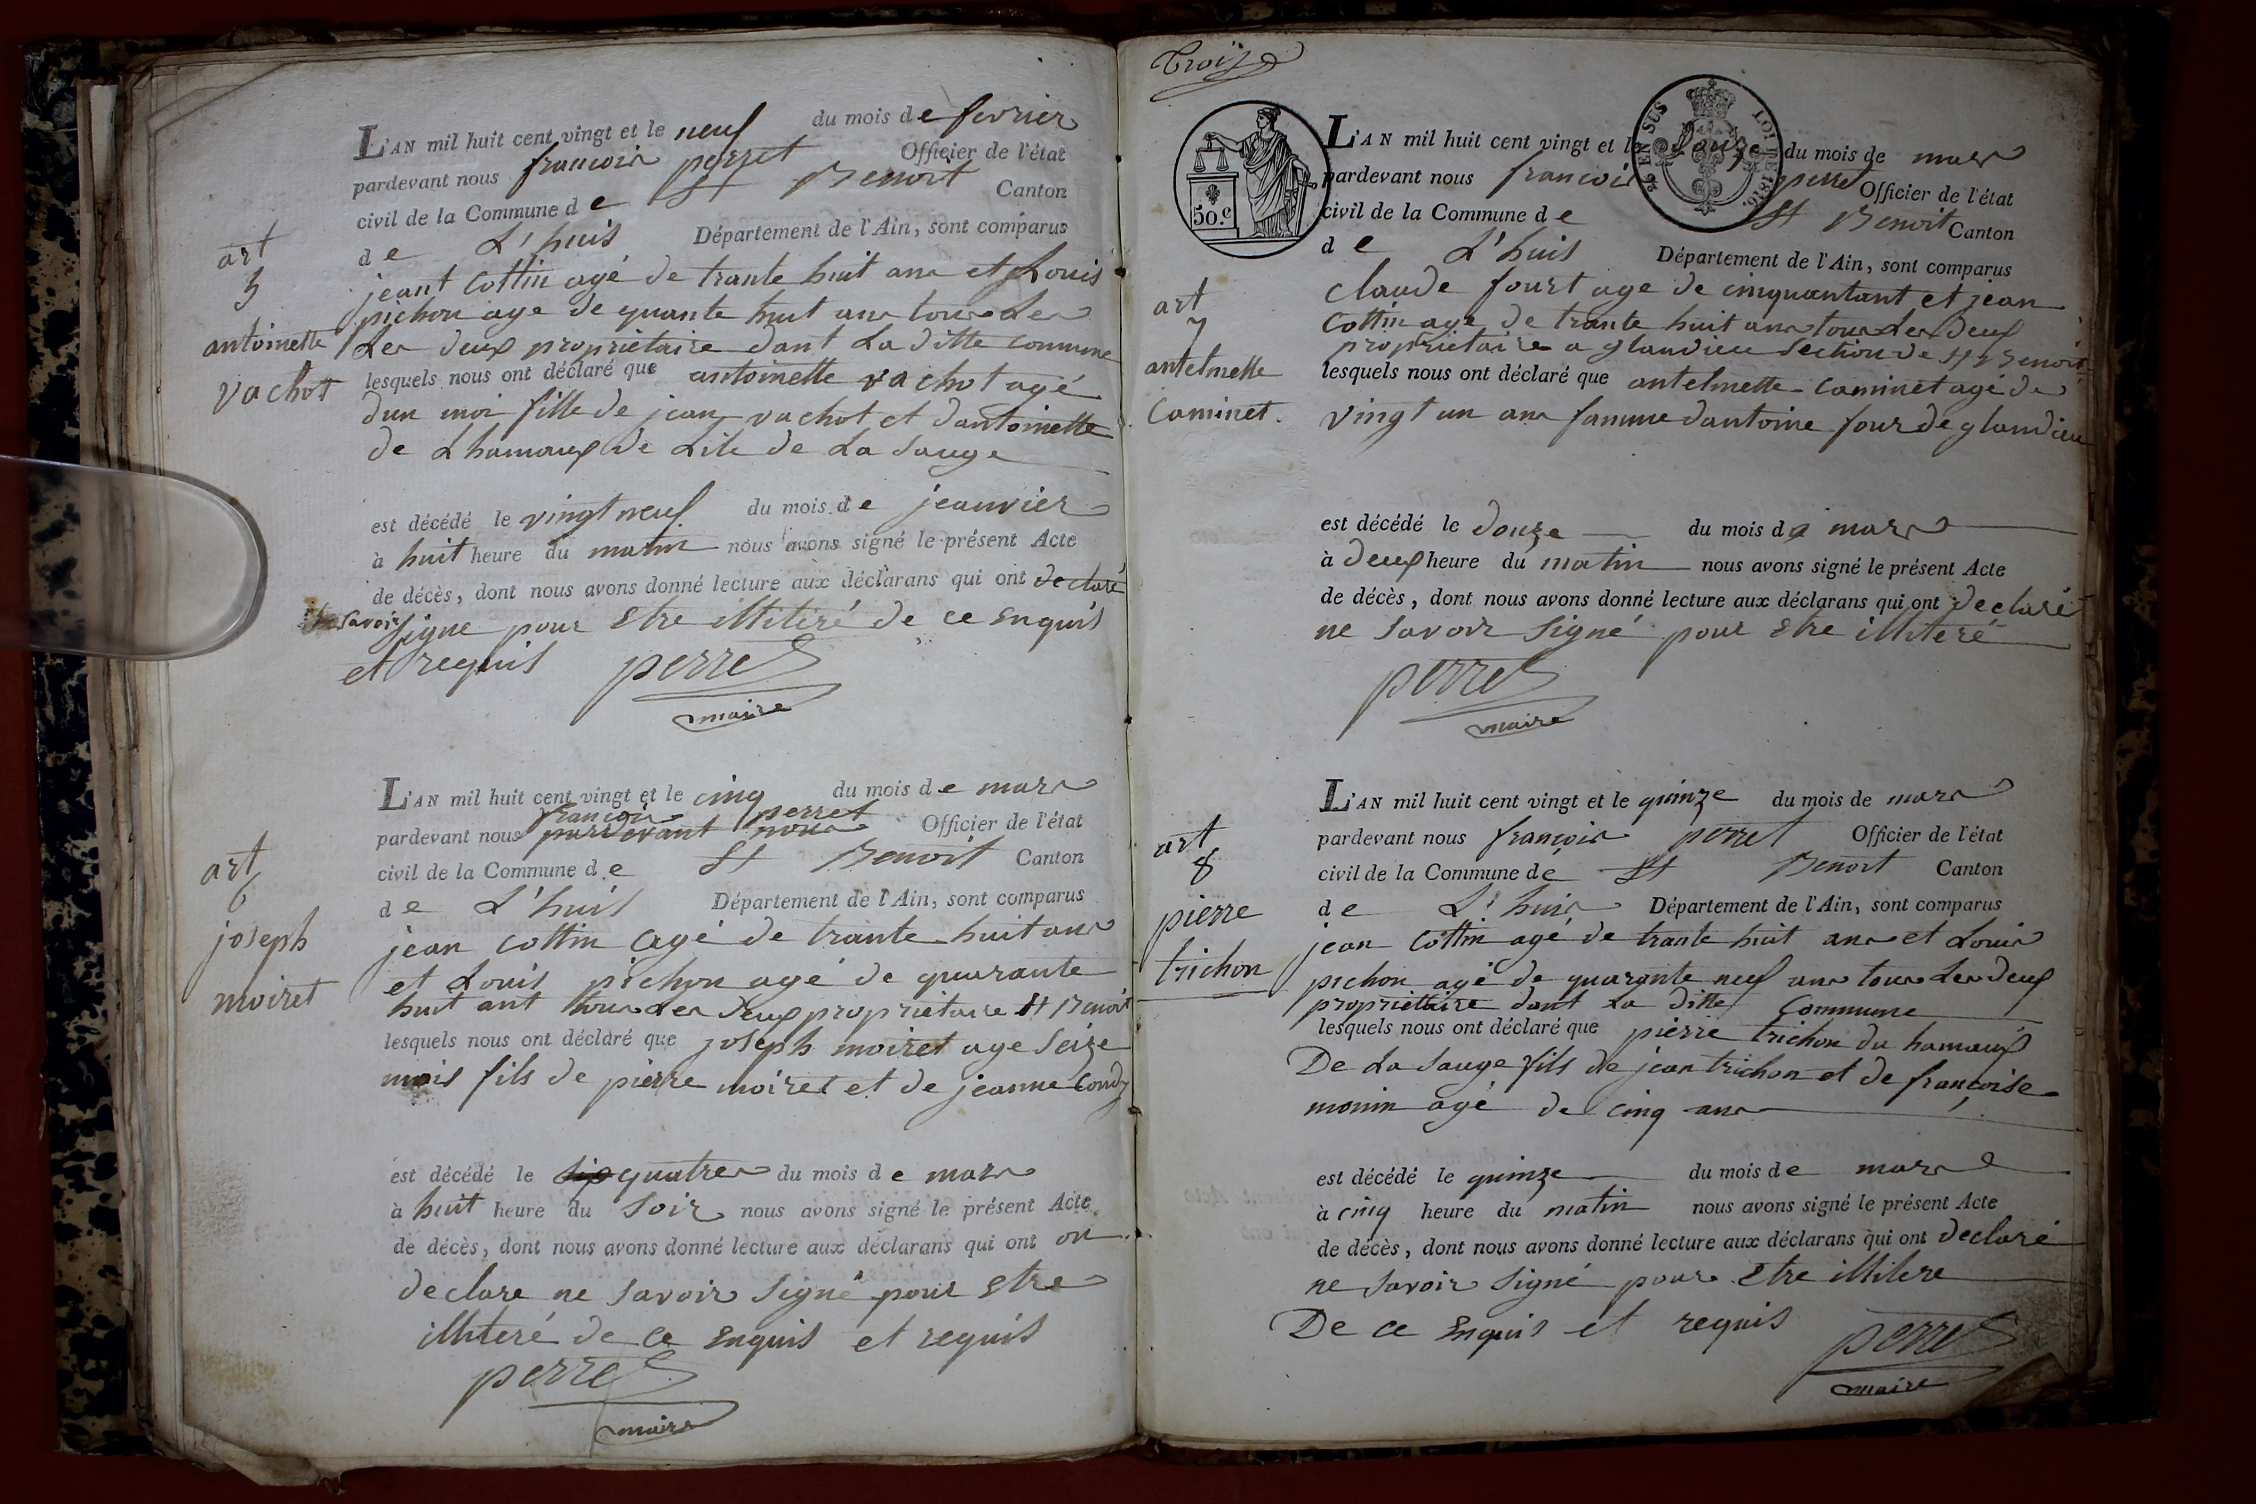 L'AN mil huit cent vingt et le neuf du mois de fevrier
pardevant nous francois perret Officier de l'état
civil de la Commune de St Benoit Canton
de L'huis Département de l'Ain, sont comparus
art
5
antoinette
vachot
jeant Cottin agé de trante huit ans et Louis
pichon age de quante huit ans tous Les
Les deux propriétaire dant La ditte commune
lesquels nous ont déclaré que antoinette vachot agé
dun moi fille de jean vachot et dantoinette
de Lhamaux de Lile de La Sauge
est décédé le vingt neuf du mois de jeanvier
à huit heure du matin nous avons signé le présent Acte
de décès, dont nous avons donné lecture aux déclarans qui ont declaré
ne savoir signe pour Etre illiteré de ce Enquis
et requis perret
maire
L'AN mil huit cent vingt et le cinq du mois de mars
francois perret
pardevant nous pardevant nous Officier de l'état
civil de la Commune de St Benoit Canton
de L'huis Département de l'Ain, sont comparus
art
6
joseph
moiret
jean Cottin agé de trante huit ans
et Louis pichon agé de quarante
huit ant tous Les deux propriétaire St Benoit
lesquels nous ont déclaré que joseph moiret age Seize
mois fils de pierre moiret et de jeanne Condy
est décédé le six quatres du mois de mars
à huit heure du Soir nous avons signé le présent Acte
de décès, dont nous avons donné lecture aux déclarans qui ont on
declare ne savoir Signé pour Etre
illiteré de ce Enquis et requis
perret
maire
Trois
50.c
EN SUS LOI DE 1816.
L'AN mil huit cent vingt et le douze du mois de mars
pardevant nous francois perret Officier de l'état
civil de la Commune de St Benoit Canton
de L'huis Département de l'Ain, sont comparus
art
7
antelmette
Caminet.
Claude fourt age de cinquantant et jean
Cottin age de trante huit ans tous Les deux
propriétaire a glandieu Section de St Benoit
lesquels nous ont déclaré que antelmette Caminet age de
vingt un ans famme dantoine four de glandieu
est décédé le douze du mois de mars
à deux heure du matin nous avons signé le présent Acte
de décès, dont nous avons donné lecture aux déclarans qui ont declaré
ne Savoir Signé pour Etre illiteré
perret
maire
L'AN mil huit cent vingt et le quinze du mois de mars
pardevant nous francois perret Officier de l'état
civil de la Commune de St Benoit Canton
de L'huis Département de l'Ain, sont comparus
art
8
pierre
trichon
jean Cottin agé de trante huit ans et Louis
pichon agé de quarante neuf ans tous Les deux
propriettaire dant La ditte Commune
lesquels nous ont déclaré que pierre trichon du hamaux
De La Sauge fils de jean trichon et de francoise
monin agé de cinq ans
est décédé le quinze du mois de mars
à cinq heure du matin nous avons signé le présent Acte
de décès, dont nous avons donné lecture aux déclarans qui ont declaré
ne savoir Signé pour Etre illitere
De ce Enquis et requis perret
maire